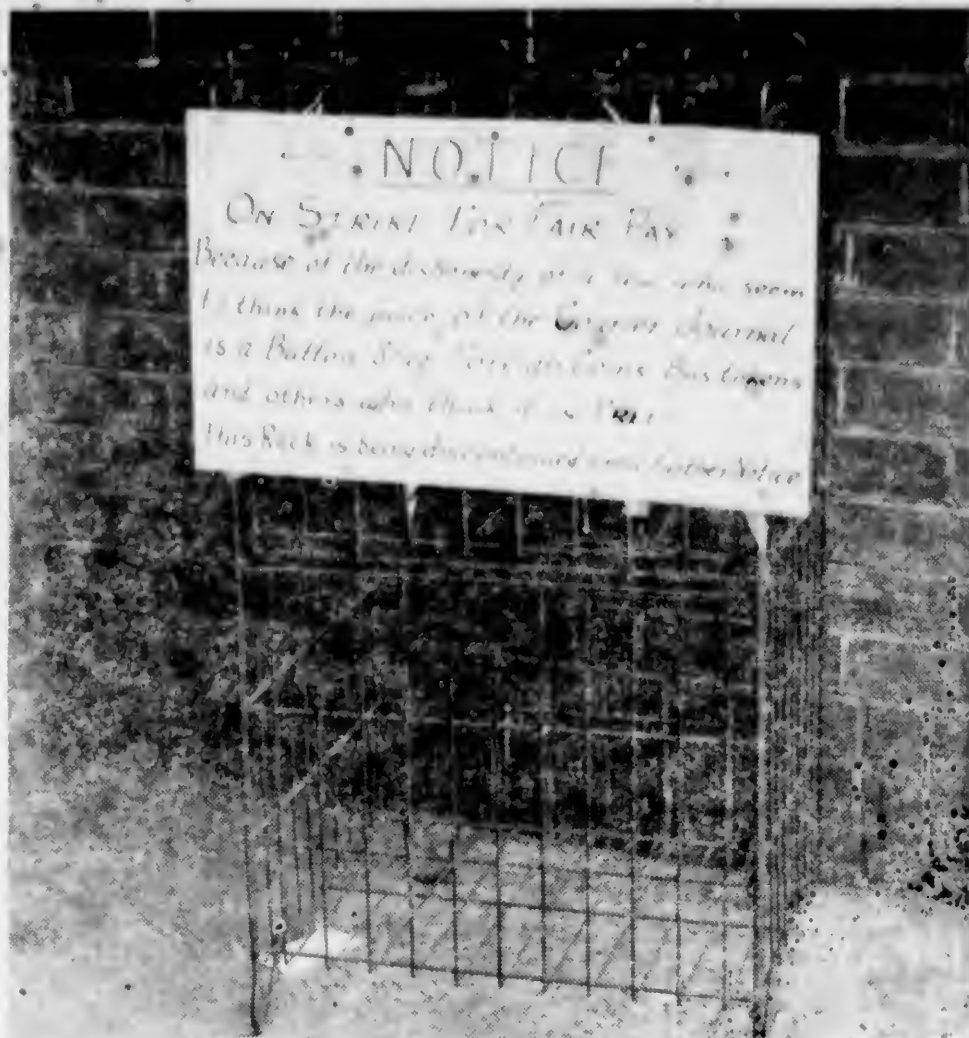 NOTICE
ON STRIKE FOR FAIR PAY
Because of the dishonesty of a few who seem
to think the price of the Courier Journal
is a Button, Bus Tokens
and others who think it is FREE
This Rack is being discontinued until further Notice